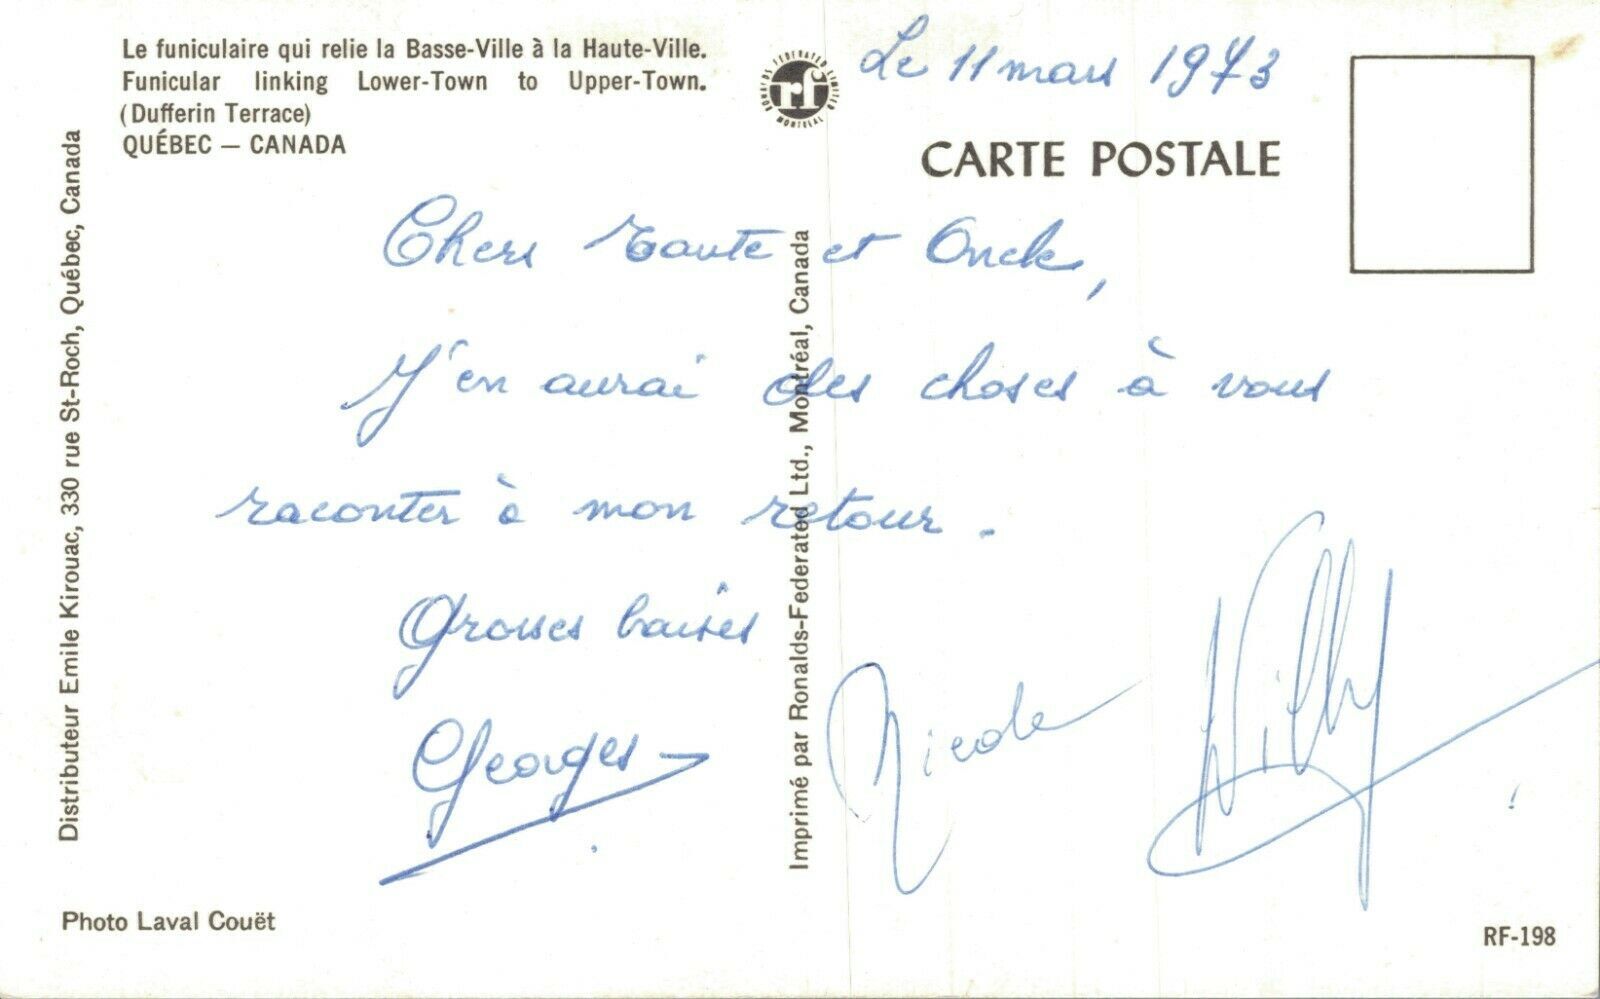 Le funiculaire qui relie la Basse-Ville à la Haute-Ville.
Funicular linking Lower-Town to Upper-Town.
(Dufferin Terrace)
QUÉBEC — CANADA
RONALDS FEDERATED LIMITED
rf
MONTREAL
Le 11 mars 1973
CARTE POSTALE
Chers tante et Oncle,
J'en aurai des choses à vous
raconter à mon retour.
Grosses baises
Georges
Nicole
Willy
Distributeur Emile Kirouac, 330 rue St-Roch, Québec, Canada
Imprimé par Ronalds-Federated Ltd., Montréal, Canada
Photo Laval Couët
RF-198